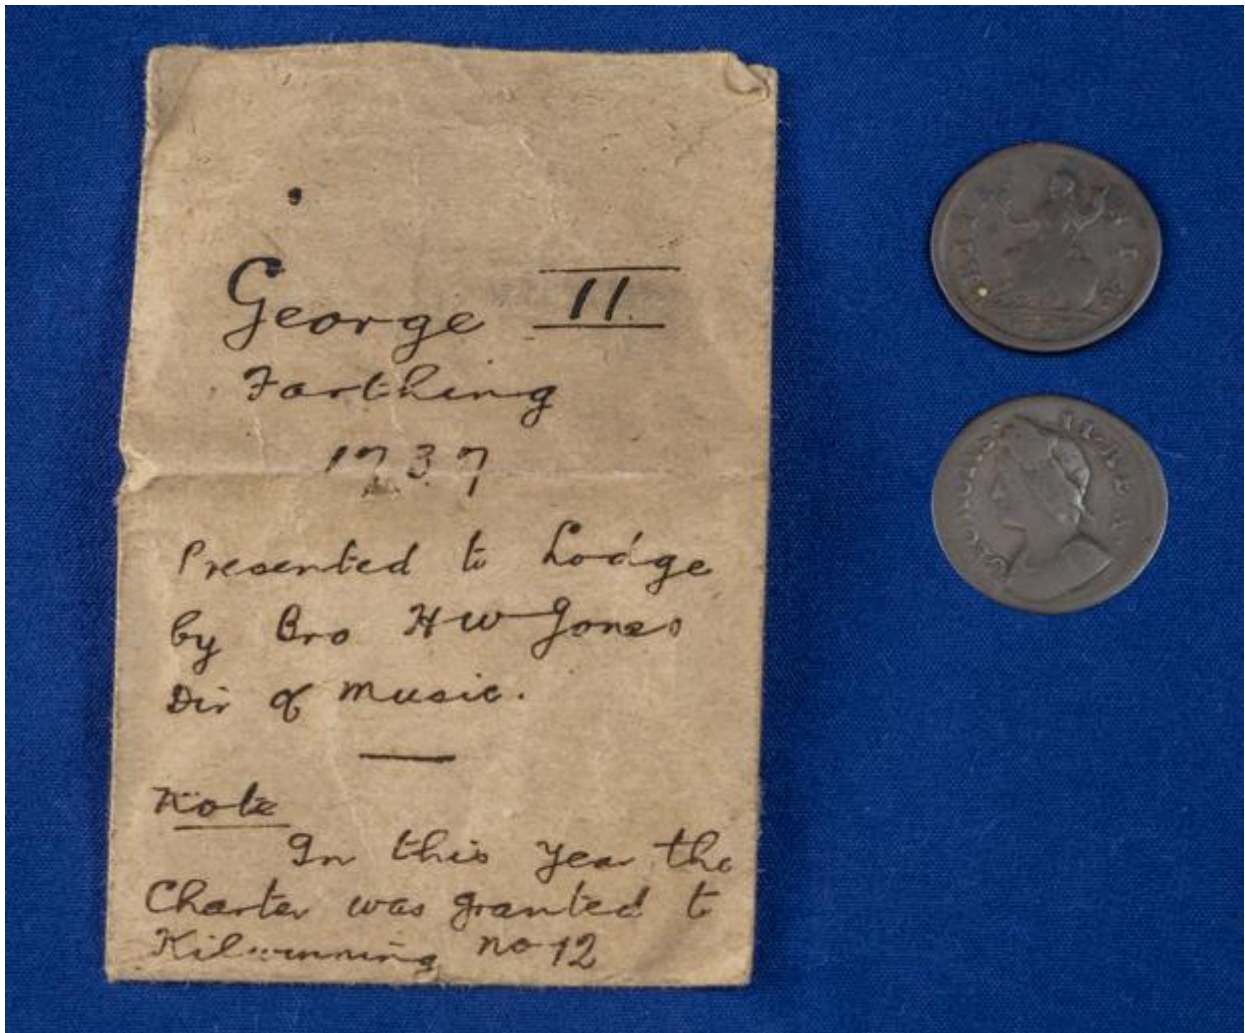 George II
Farthing
1737
Presented to Lodge
by Bro H W Jones
Dir of Music.
Note
In this year the
Charter was granted to
Kilwinning no 12
GEORGIVS II